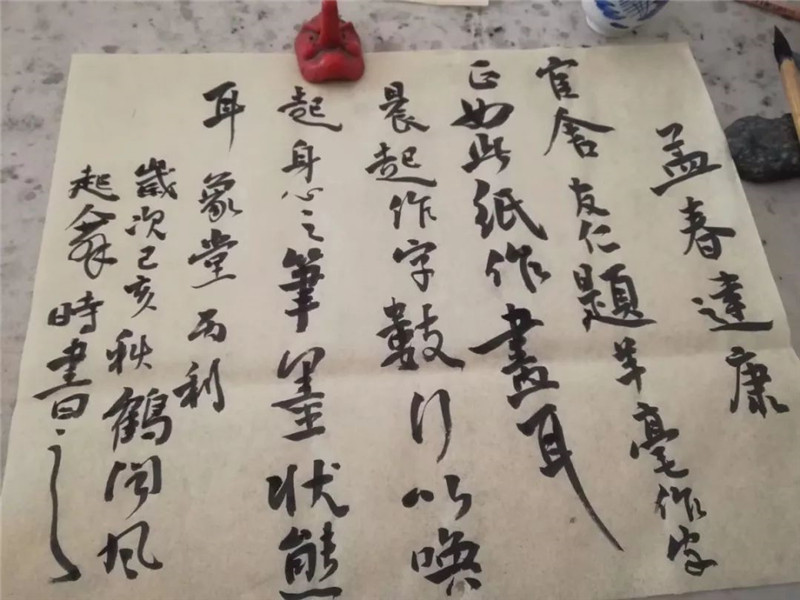 孟春達康
官舍友仁題羊毫作字
正如此紙作畫耳
晨起作字數行以喚
起身心之筆墨狀態
耳 象堂丙利
歲次己亥秋鶴闲風
起翕時書日